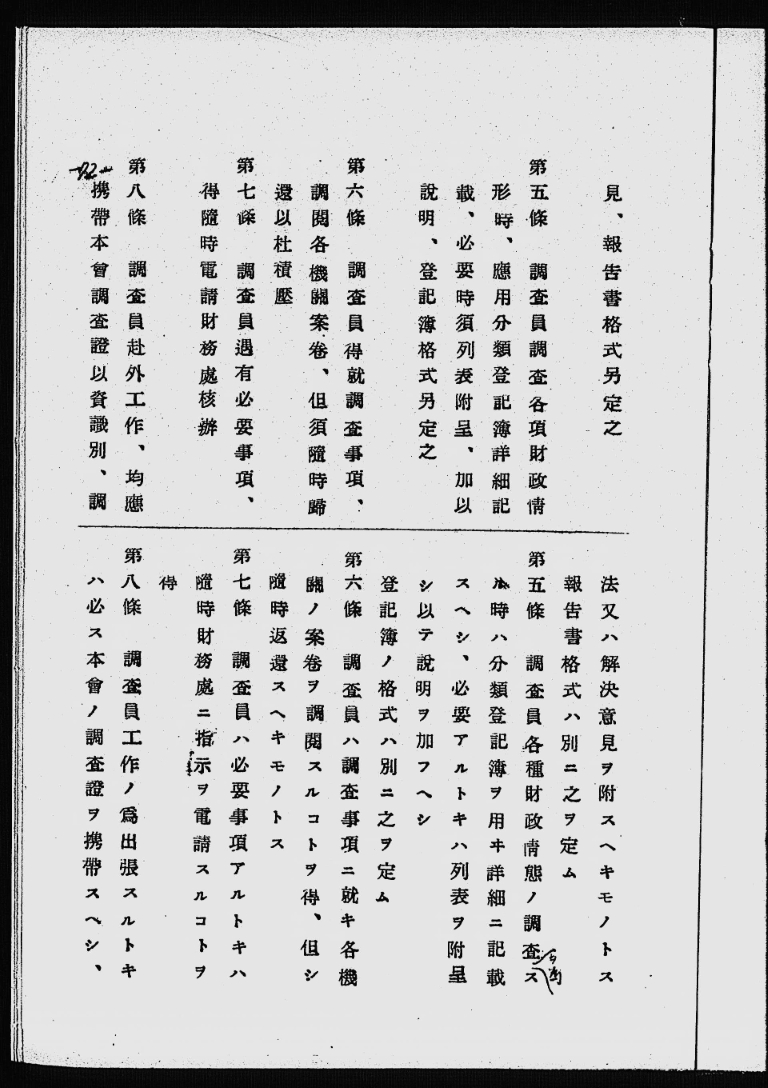 見、報告書格式另定之
第五條　調查員調查各項財政情
形時、應用分類登記簿詳細記
載、必要時須列表附呈、加以
說明、登記簿格式另定之
第六條　調查員得就調查事項、
調閱各機關案卷、但須隨時歸
還以杜積壓
第七條　調查員遇有必要事項、
得隨時電請財務處核辦
第八條　調查員赴外工作、均應
携帶本會調查證以資識別、調
法又ハ解決意見ヲ附スヘキモノトス
報告書格式ハ別ニ之ヲ定ム
第五條　調查員各種財政情態ノ調查ス
ル時ハ分類登記簿ヲ用ヰ詳細ニ記載
スヘシ、必要アルトキハ列表ヲ附呈
シ以テ說明ヲ加フヘシ
登記簿ノ格式ハ別ニ之ヲ定ム
第六條　調查員ハ調查事項ニ就キ各機
關ノ案卷ヲ調閱スルコトヲ得、但シ
隨時返還スヘキモノトス
第七條　調查員ハ必要事項アルトキハ
隨時財務處ニ指示ヲ電請スルコトヲ
得
第八條　調查員工作ノ爲出張スルトキ
ハ必ス本會ノ調查證ヲ携帶スヘシ、